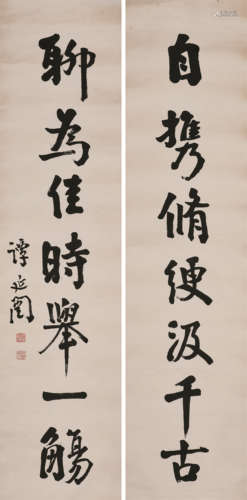 自携脩綆汲千古
聊為佳時舉一觴
譚延闓